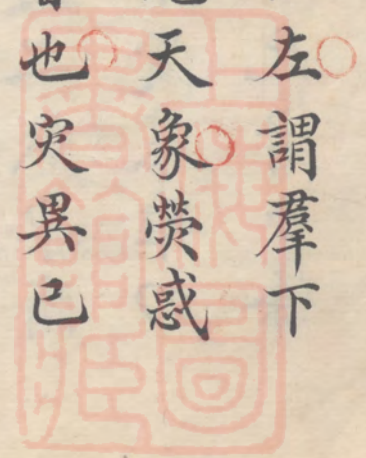 左謂羣下
天象熒惑
也灾異已